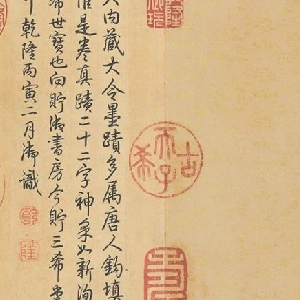 大内藏大令墨蹟多屬唐人鈎填
惟是卷真蹟二十二字神采如新洵
希世寶也向貯御書房今貯三希堂
中乾隆丙寅二月御識
乾隆
古希天子